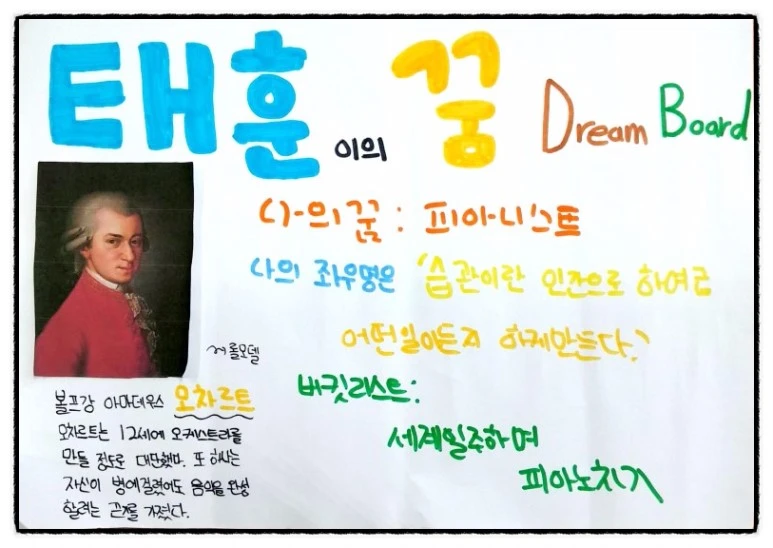 태훈이의 꿈 Dream Board
나의 꿈 : 피아니스트
나의 좌우명은 '습관이란 인간으로 하여금
어떤일이든지 하게만든다.'
~에 롤모델
볼프강 아마데우스 모차르트
모차르트는 12세에 오케스트라를
만들 정도로 대단했다. 또 하나는
자신이 병에걸렸어도 음악을 완성
할려는 끈기를 가졌다.
버킷리스트:
세계일주하며
피아노치기